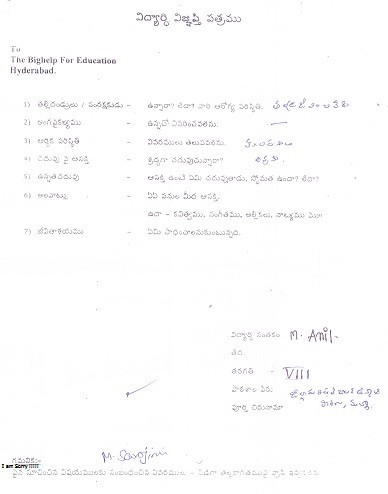 విద్యార్థి విజ్ఞప్తి పత్రము
To
The Bighelp For Education
Hyderabad.
1) తల్లిదండ్రులు / సంరక్షకుడు - ఉన్నారా? లేదా? వారి ఆరోగ్య పరిస్థితి.
2) అంగవైకల్యము - ఉన్నచో వివరించవలెను.
3) ఆర్థిక పరిస్థితి - వివరములు తెలుపవలెను.
4) చదువు పై ఆసక్తి - శ్రద్ధగా చదువుచున్నారా?
5) ఉన్నతచదువు - ఆసక్తి ఉంటే ఏమి చదువుతాడు, స్తోమత ఉందా? లేదా?
6) అలవాట్లు - ఏఏ పనుల మీద ఆసక్తి.
ఉదా - కవిత్వము, సంగీతము, అల్లికలు, నాట్యము మొ॥
7) జీవితాశయము - ఏమి సాధించాలనుకుంటున్నది.
విద్యార్థి సంతకం M. Anil
తేది
తరగతి - VIII
పాఠశాల పేరు
పూర్తి చిరునామా
M. Sarojini
గమనిక:-
I am Sorry !!!!!
పైన సూచించిన విషయములకు సంబంధించిన వివరములు -